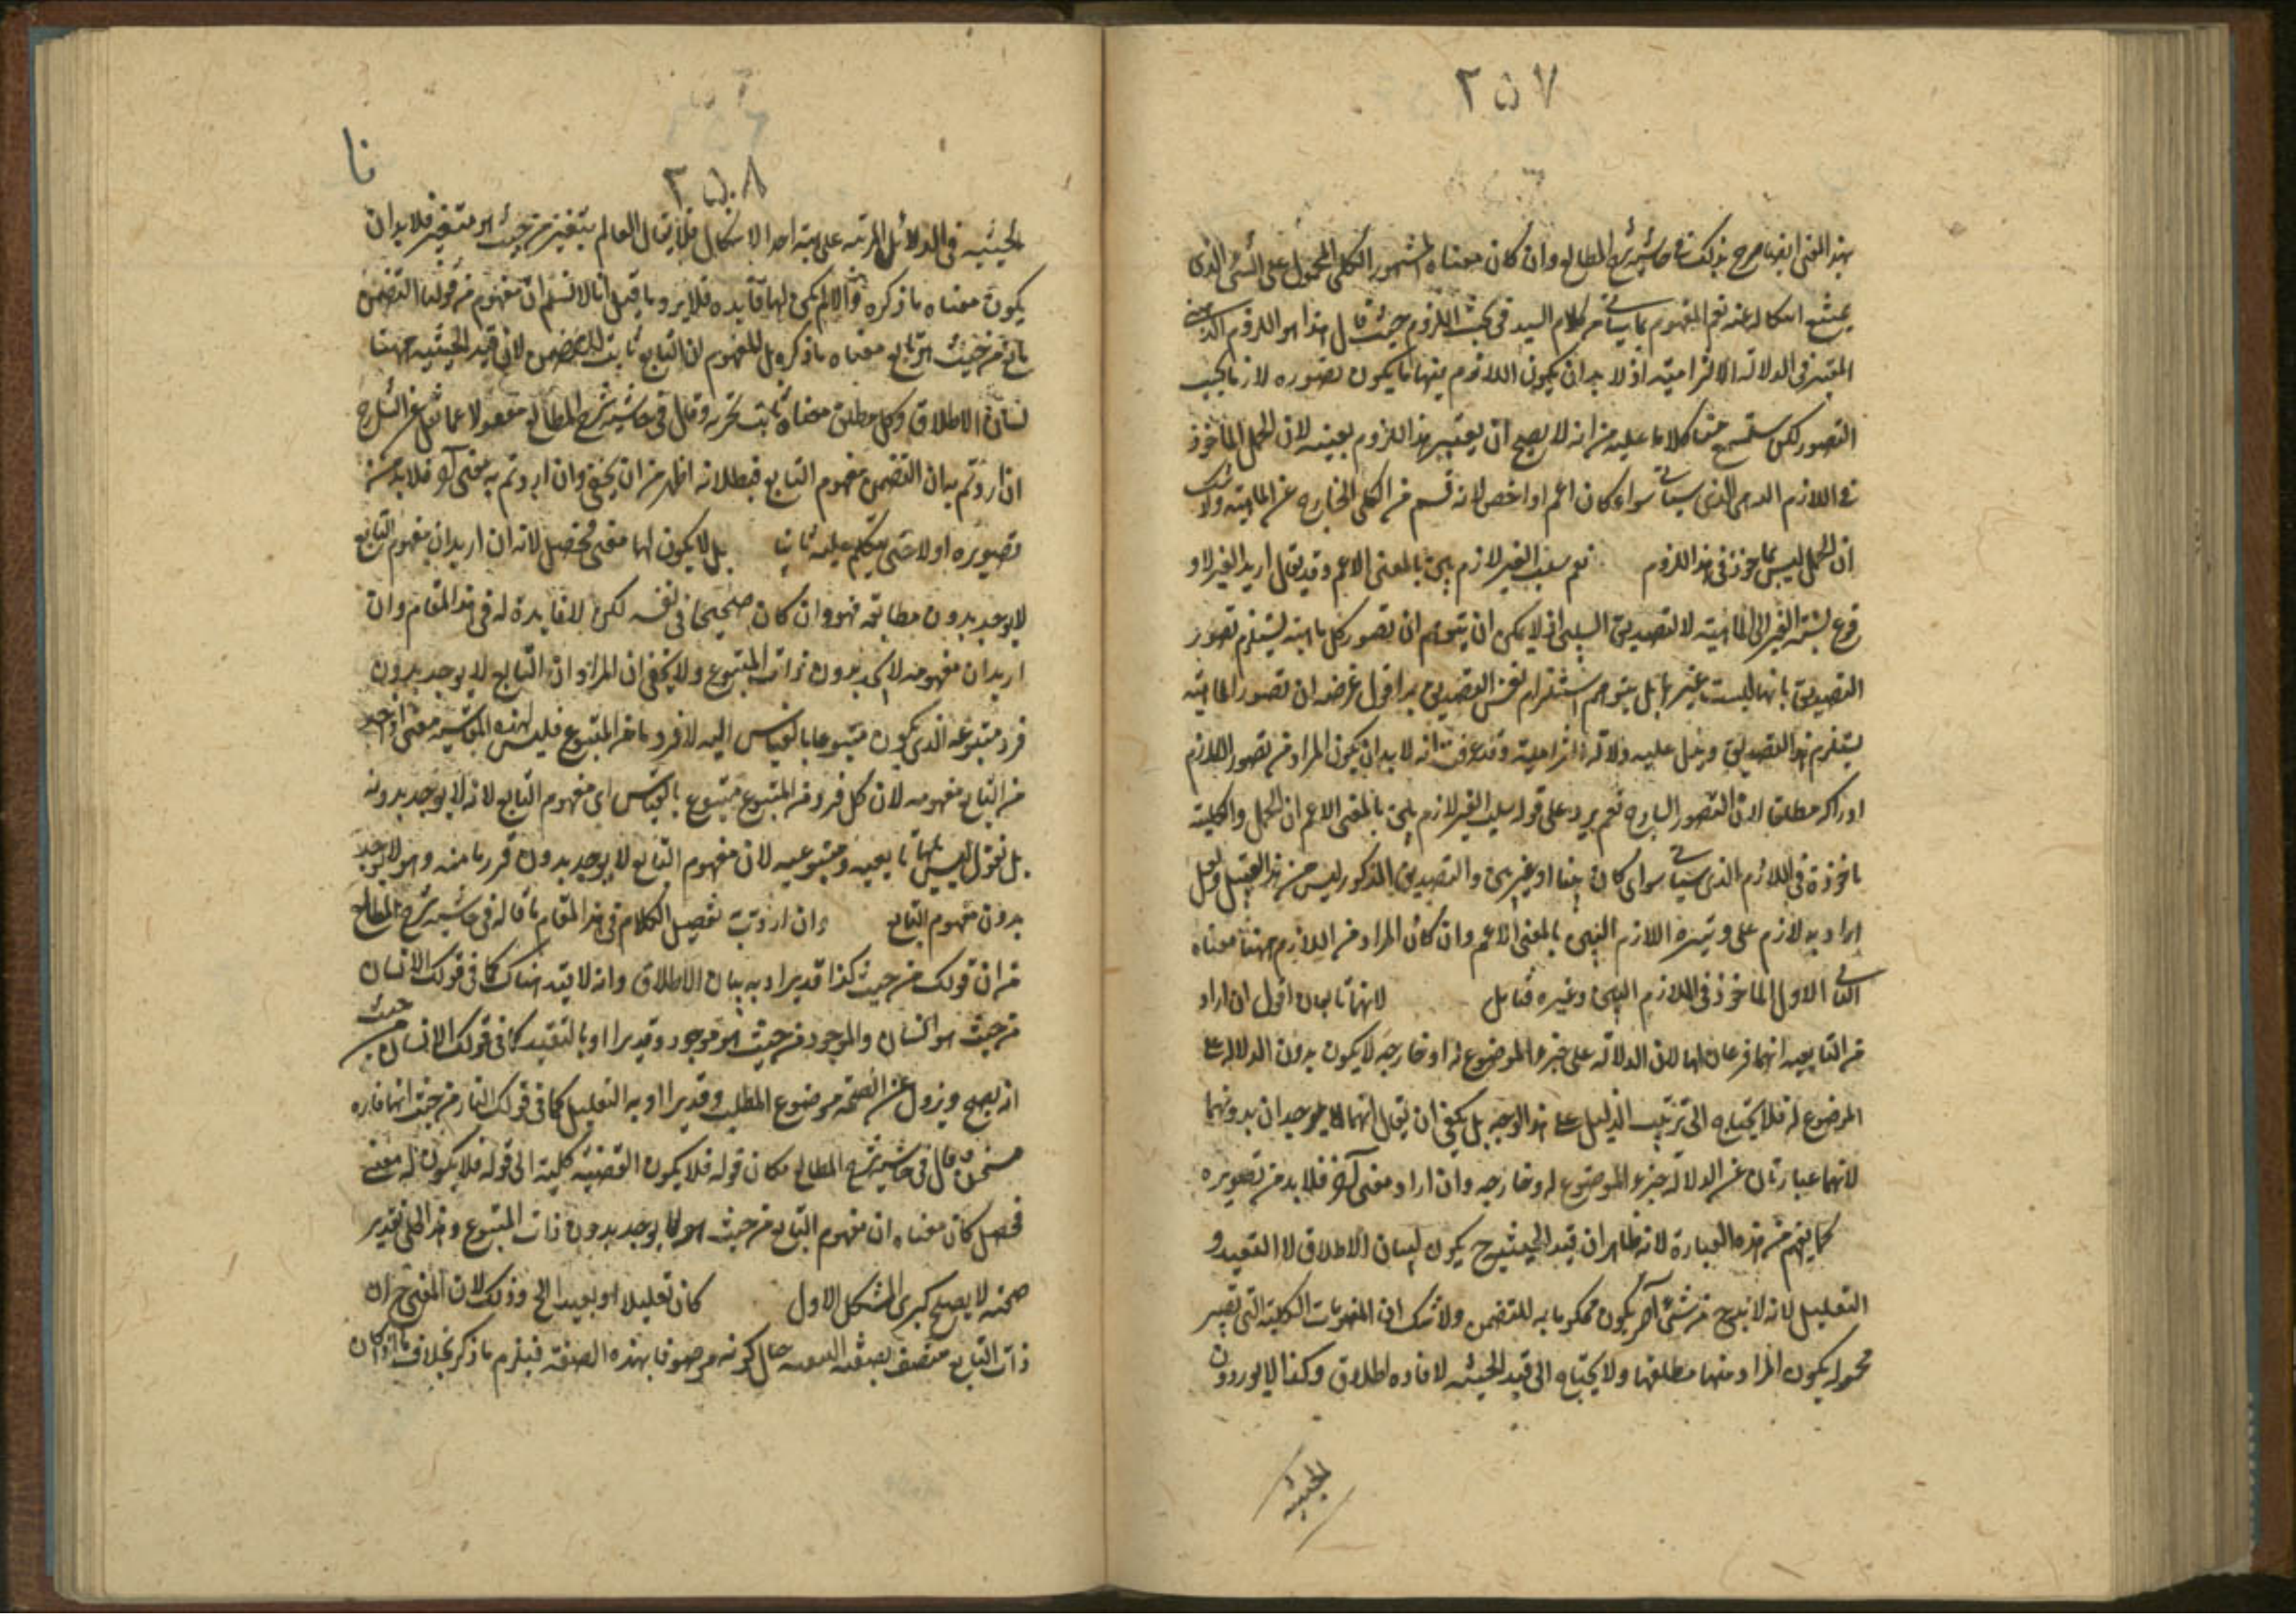 ٢٥٧
بهذا المعنى ايضا صرح بذلك في حاشية شرح المطالع وان كان معناه المشهور الكلى المحمول على الشئ الذى
يمتنع انفكاكه عنه نعم المفهوم مما سياتى من كلام السيد فى بحث اللزوم حيث قال هذا هو اللزوم الذهنى
المعتبر فى الدلالة الالتزامية اذ لا بد ان يكون اللازم فيها ما يكون تصوره لازما بحسب
التصور لكن ستسمع منا كلاما عليه من انه لا يصح ان يعتبر هذا اللزوم بعينه لان الحمل الماخوذ
فى اللازم الذى سياتى سواء كان اعم او اخص لانه قسم من الكلى الخارج عن الماهية ولا شك
ان الحمل ليس بماخوذ فى هذا اللزوم نعم سلب الغير لازم بين بالمعنى الاعم وقد يقال اريد الغير لا و
قوع نسبة الغير الى الماهية لا التصديق السلبى اذ لا يمكن ان يتوهم ان تصور كل ماهية يستلزم تصور
التصديق بانها ليست غيرها بل يتوهم استلزام نفس التصديق اقول غرضه ان تصور الماهية
يستلزم هذا التصديق ويدل عليه دلالة التزامية وقد عرفت انه لا بد ان يكون المراد من تصور اللازم
ادراكه مطلقا لان التصور الساذج نعم يرد على قوله سلب الغير لازم بين بالمعنى الاعم ان الحمل والكلية
ماخوذة فى اللازم الذى سياتى سواء كان بينا او غير بين والتصديق المذكور ليس من هذا القبيل ولعل
المراد به لازم على وتيرة اللازم البين بالمعنى الاعم وان كان المراد من اللازم ههنا معناه
الاول الماخوذ فى اللازم البين وغيره فتامل لانهما تابعان اقول ان اراد
من التابعية انهما فرعان لها لان الدلالة على جزء الموضوع له او خارجه لا يكون بدون الدلالة على
الموضوع له فلا يحتاج الى ترتيب الدليل على هذا الوجه بل يكفى ان يقال انهما لا يوجدان بدونها
لانهما عبارتان عن الدلالة جزء الموضوع له وخارجه وان اراد معنى آخر فلا بد من تصويره
كما يفهم من هذه العبارة لانه ظاهر ان قيد الحيثية ح يكون لبيان الاطلاق لا التقييد و
التعليل لانه لا بد ح من شئ آخر يكون محكوما به للتضمن ولا شك ان المفهومات الكلية التى تعتبر
محموله يكون المراد منها مطلقها ولا يحتاج الى قيد الحيثية لافادة اطلاق وكذا لا يوردون
الحيثية
٢٥٨
الحيثية فى الدلائل المرتبة على هيئة احد الاشكال فلا يقال العالم متغير من حيث هو متغير فلا بد ان
يكون معناه ما ذكره والا لم يكن لها فائدة فلا يرد ما قيل انا لا نسلم ان مفهوم من قولنا التضمن
تابع من حيث هو تابع معناه ما ذكره بل المفهوم ان التابع ثابت للتضمن لان قيد الحيثية ههنا
لبيان الاطلاق وكل مطلق معناه ثابت وقال فى حاشية شرح المطالع
ان اردتم به ان التضمن مفهوم التابع فبطلانه اظهر من ان يخفى وان اردتم به معنى آخر فلا بد من
تصويره اولا حتى يتكلم عليه ثانيا بل لا يكون لها معنى محصل لانه ان اريد ان مفهوم التابع
لا يوجد بدون مطابقة فهو وان كان صحيحا فى نفسه لكن لا فايدة له فى هذا المقام وان
اريد ان مفهومه لا يوجد بدون ذات المتبوع ولا يخفى ان المراد ان التابع لا يوجد بدون
فرد متبوعه الذى يكون متبوعا بالقياس اليه لا فرد ما من المتبوع فليس لهذه معنى
من التابع مفهومه لان كل فرد من المتبوع متبوع بالقياس اى مفهوم التابع لانه لا يوجد بدونه
بل نقول ليس بينهما تابعيه ومتبوعيه لان مفهوم التابع لا يوجد بدون فرد ما منه وهو لا يوجد
بدون مفهوم التابع وان اردت تفصيل الكلام فى هذا المقام ما قاله فى حاشية شرح المطالع
من ان قولك من حيث كذا قد يراد به بيان الاطلاق وانه لا قيد هناك كما فى قولك الانسان
من حيث هو انسان والموجود من حيث هو موجود وقد يراد به التقييد كما فى قولك الانسان من حيث
انه يصح ويزول عن الصحة موضوع الطب وقد يراد به التعليل كما فى قولك النار من حيث انها حارة
مسخن وقال فى حاشية شرح المطالع مكان قوله فلا يكون القضية كلية الى قوله فلا يكون له معنى
محصل كان معناه ان مفهوم التابع من حيث هو لا يوجد بدون ذات المتبوع وهذا على تقدير
صحته لا يصلح كبرى للشكل الاول كان تعليلا هو بعيد الخ وذلك لان المعنى ح ان
ذات التابع متصف بصفة حال كونه موصوفا بهذه الصفة فيلزم ما ذكر بخلاف ما اذا كان